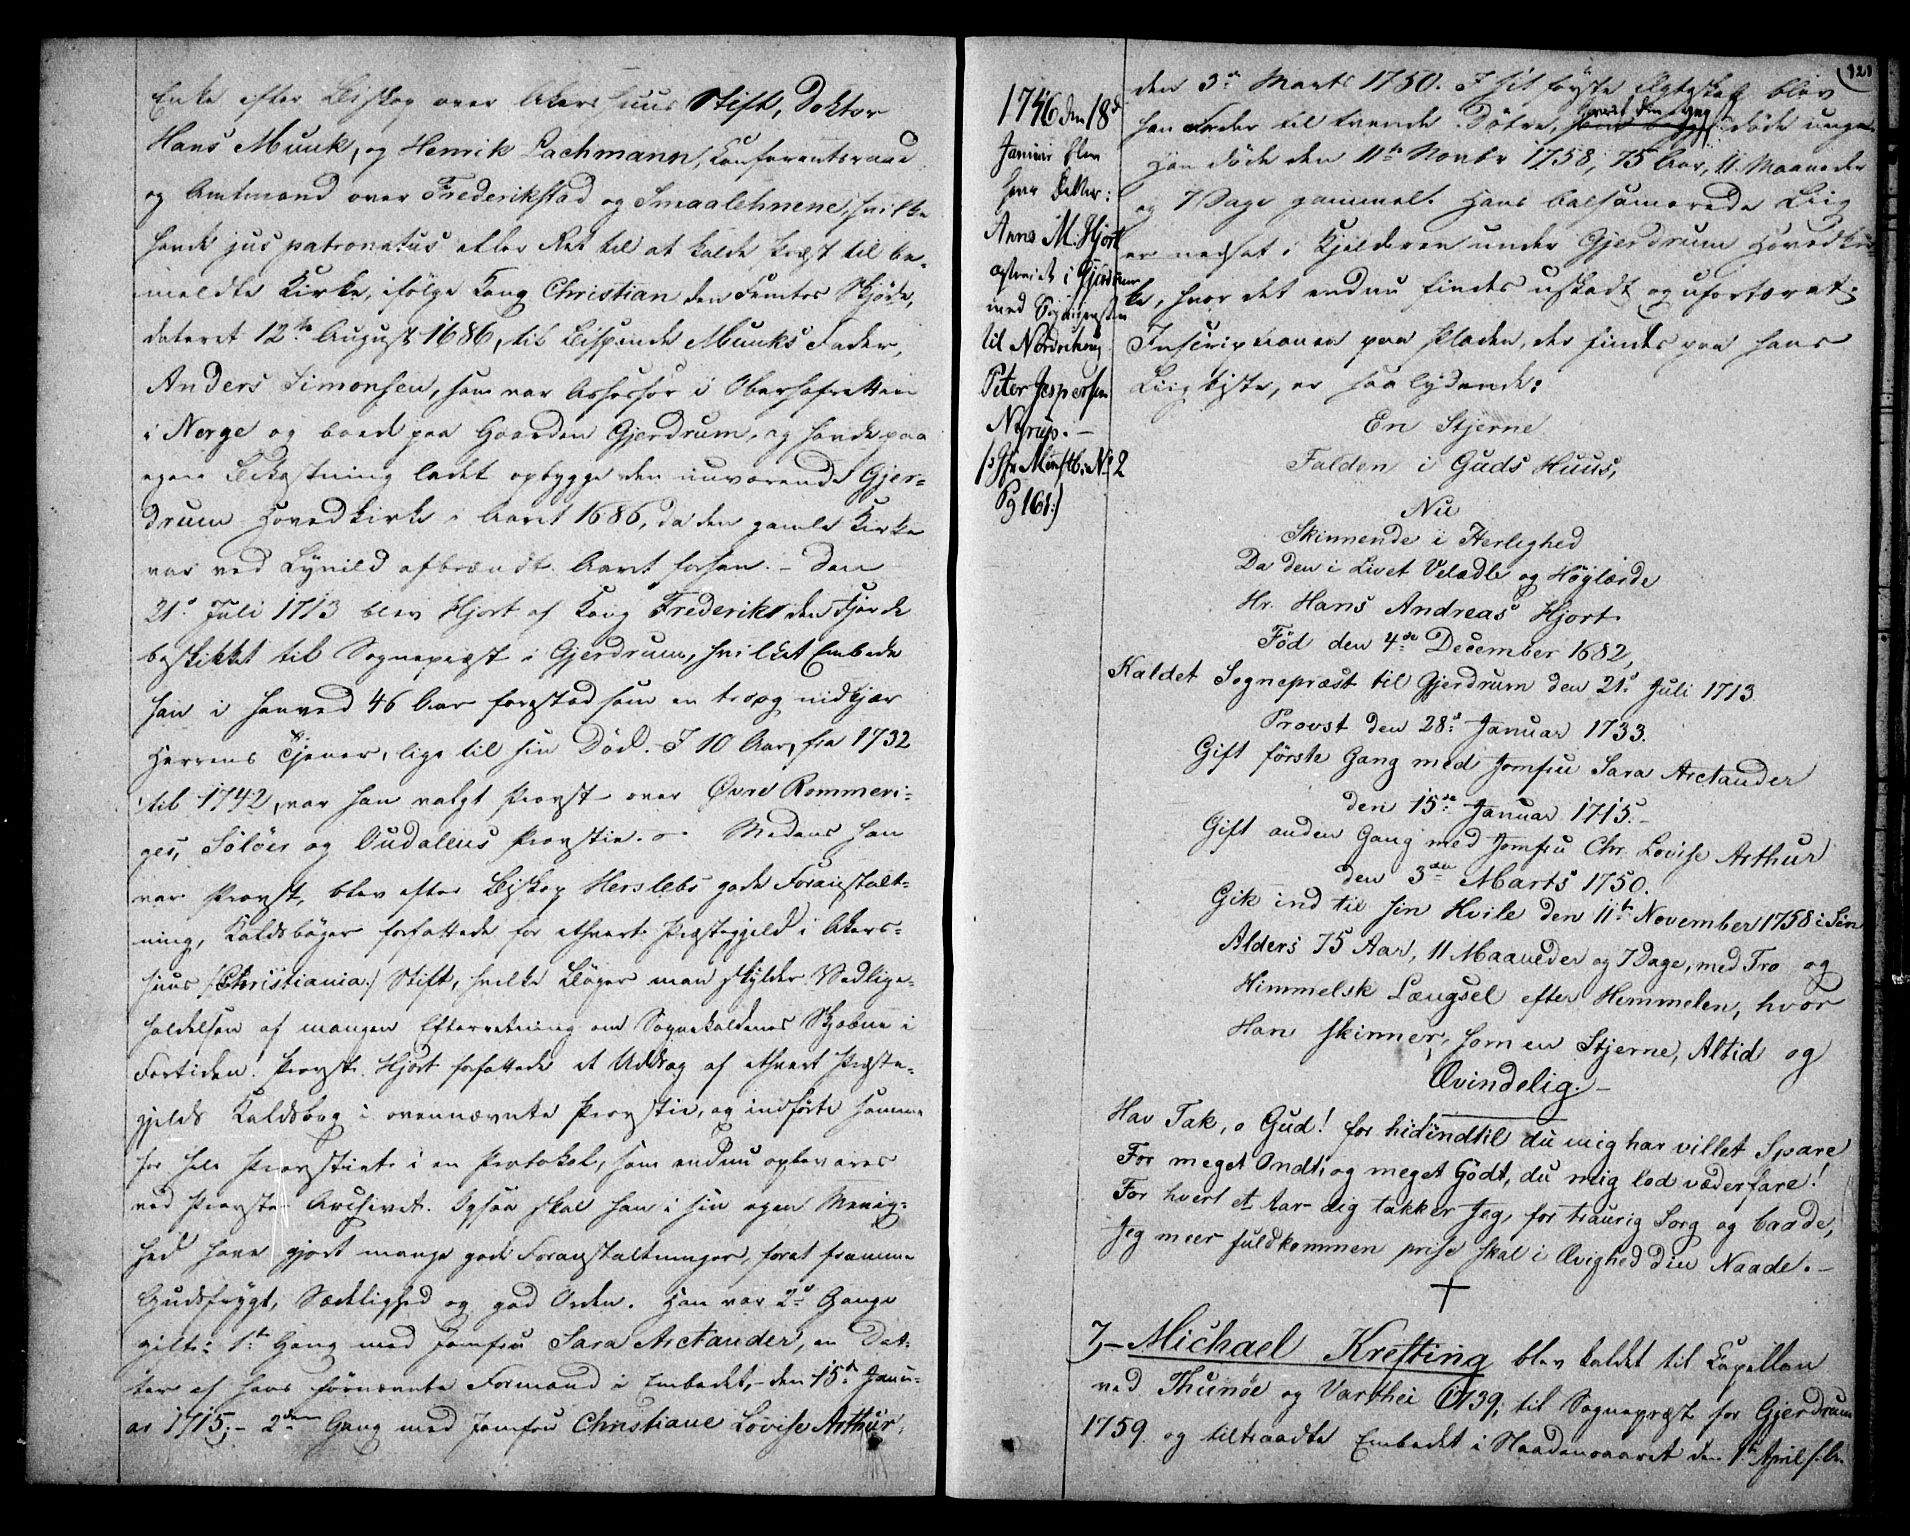 Enke efter Biskop over Akershuus Stift, Doktor
Hans Munk, og Henrik Lachmann, Conferentsraad
og Amtmand over Frederikstad og Smaalehnene, hvilke
havde jus patronatus eller Ret til at kalde Præst til be-
meldte Kirke, ifølge Kong Christian den Femtes Skjøde,
dateret 12te August 1686, til Bispinde Munks Fader,
Anders Simonsen, som var Assessor i Oberhofretten
i Norge og boede paa Gaarden Gjerdrum, og havde paa
egen Bekostning ladet opbygge den nuværende Gjer-
drum Hovedkirke i Aaret 1686, da den gamle Kirke
var ved Lynild afbrændt Aaret forhen. - Den
21de Juli 1713 blev Hjort af Kong Frederik den Fjerde
beskikket til Sognepræst i Gjerdrum, hvilket Embede
han i henved 46 Aar forestod som en tro og nidkjær
Herrens Tjener, lige til sin Død. I 10 Aar, fra 1732
til 1742, var han valgt Provst over Øvre Rommeri-
ges, Soløer og Oudalens Provstie. - Medens han
var Provst, blev efter Biskop Herslebs gode Foranstalt-
ning, Kaldsbøger forfattede for ethvert Præstegjeld i Akers-
huus /:Christiania:/ Stift, hvilke Bøger man skylder Vedlige-
holdelsen af mangen Efterretning om Sognekaldenes Skjæbne i
Fortiden. Provst Hjort forfattede et Uddrag af ethvert Præste-
gjelds Kaldsbog i ovennævnte Provstie, og indførte samme
for hele Provstiet i en Protokol, som endnu opbevares
ved Provste Archivet. Ogsaa skal han i sin egen Menig-
hed have gjort mange gode Foranstaltninger, forat fremme
Gudsfrygt, Sædelighed og god Orden. Han var 2de Gange
gift: 1ste Gang med Jomfru Sara Arctander, en Dat-
ter af hans fornævnte Formand i Embedet, - den 15de Janu-
ar 1715; - 2den Gang med Jomfru Christiane Lovise Arthur,
1746 den 18d
Januar blev
hans Datter:
Anna M. Hjort
ægteviet i Gjerdrum
med Sognepræsten
til Nordrehoug
Peter Jespersen
Nyrup. -
/: Cfr Minstb: No 2
Pg 161 :/
121
den 3de Marts 1750. I sit første Ægteskab blev
han Fader til tvende Døtre, døde unge
Han døde den 11te Novbr 1758, 75 Aar, 11 Maaneder
og 7 Dage gammel. Hans balsamerede Liig
er nedsat i Kjelderen under Gjerdrum Hovedkir-
ke, hvor det endnu findes uskadt og ufortæret;
Inscriptionen paa Pladen, der findes paa hans
Liigkiste, er saalydende:
En Stjerne
Falden i Guds Huus,
Nu
Skinnende i Herlighed
Da den i Livet Velædle og Høylærde
Hr. Hans Andreas Hjort
Föd den 4de December 1682,
Kaldet Sognepræst til Gjerdrum den 21d Juli 1713
Provst den 28d Januar 1733.
Gift förste Gang med Jomfru Sara Arctander
den 15de Januar 1715. -
Gift anden Gang med Jomfru Chr. Lovise Arthur
den 3den Marts 1750.
Gik ind til sin Hvile den 11te November 1758 i Sin
Alders 75 Aar, 11 Maaneder og 7 Dage, med Tro og
Himmelsk Længsel efter Hemmelen, hvor
Han skinner, som en Stjerne, Altid og
Ævindelig. -
Hav Tak, o Gud! for hidindtil du mig har villet Spare
For meget Ondt, og meget Godt, du mig lod væderfare!
For hvert et Aar dig takker Jeg, for traurig Sorg og baade,
Jeg meer fuldkommen prise skal i Ævighed din Naade. -
7, - Michael Krefting blev kaldet til Capellan
ved Thunøe og Varthei 1739, til Sognepræst for Gjerdrum
1759 og tiltraadte Embedet i Naadensaaret den 1ste April s. A.